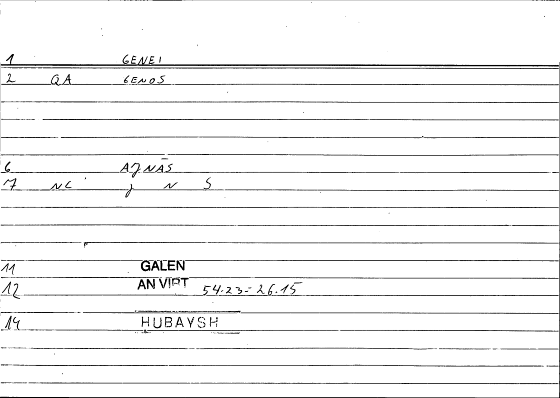 1 GENEI
2 QA GENOS
6 AJNĀS
7 NC J N S
11 GALEN
12 AN VIRT 54.23 = 26.15
14 HUBAYSH